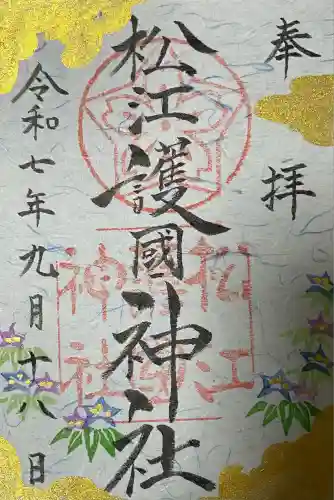 奉拝
松江護國神社
令和七年九月十八日
松江
護國
神社